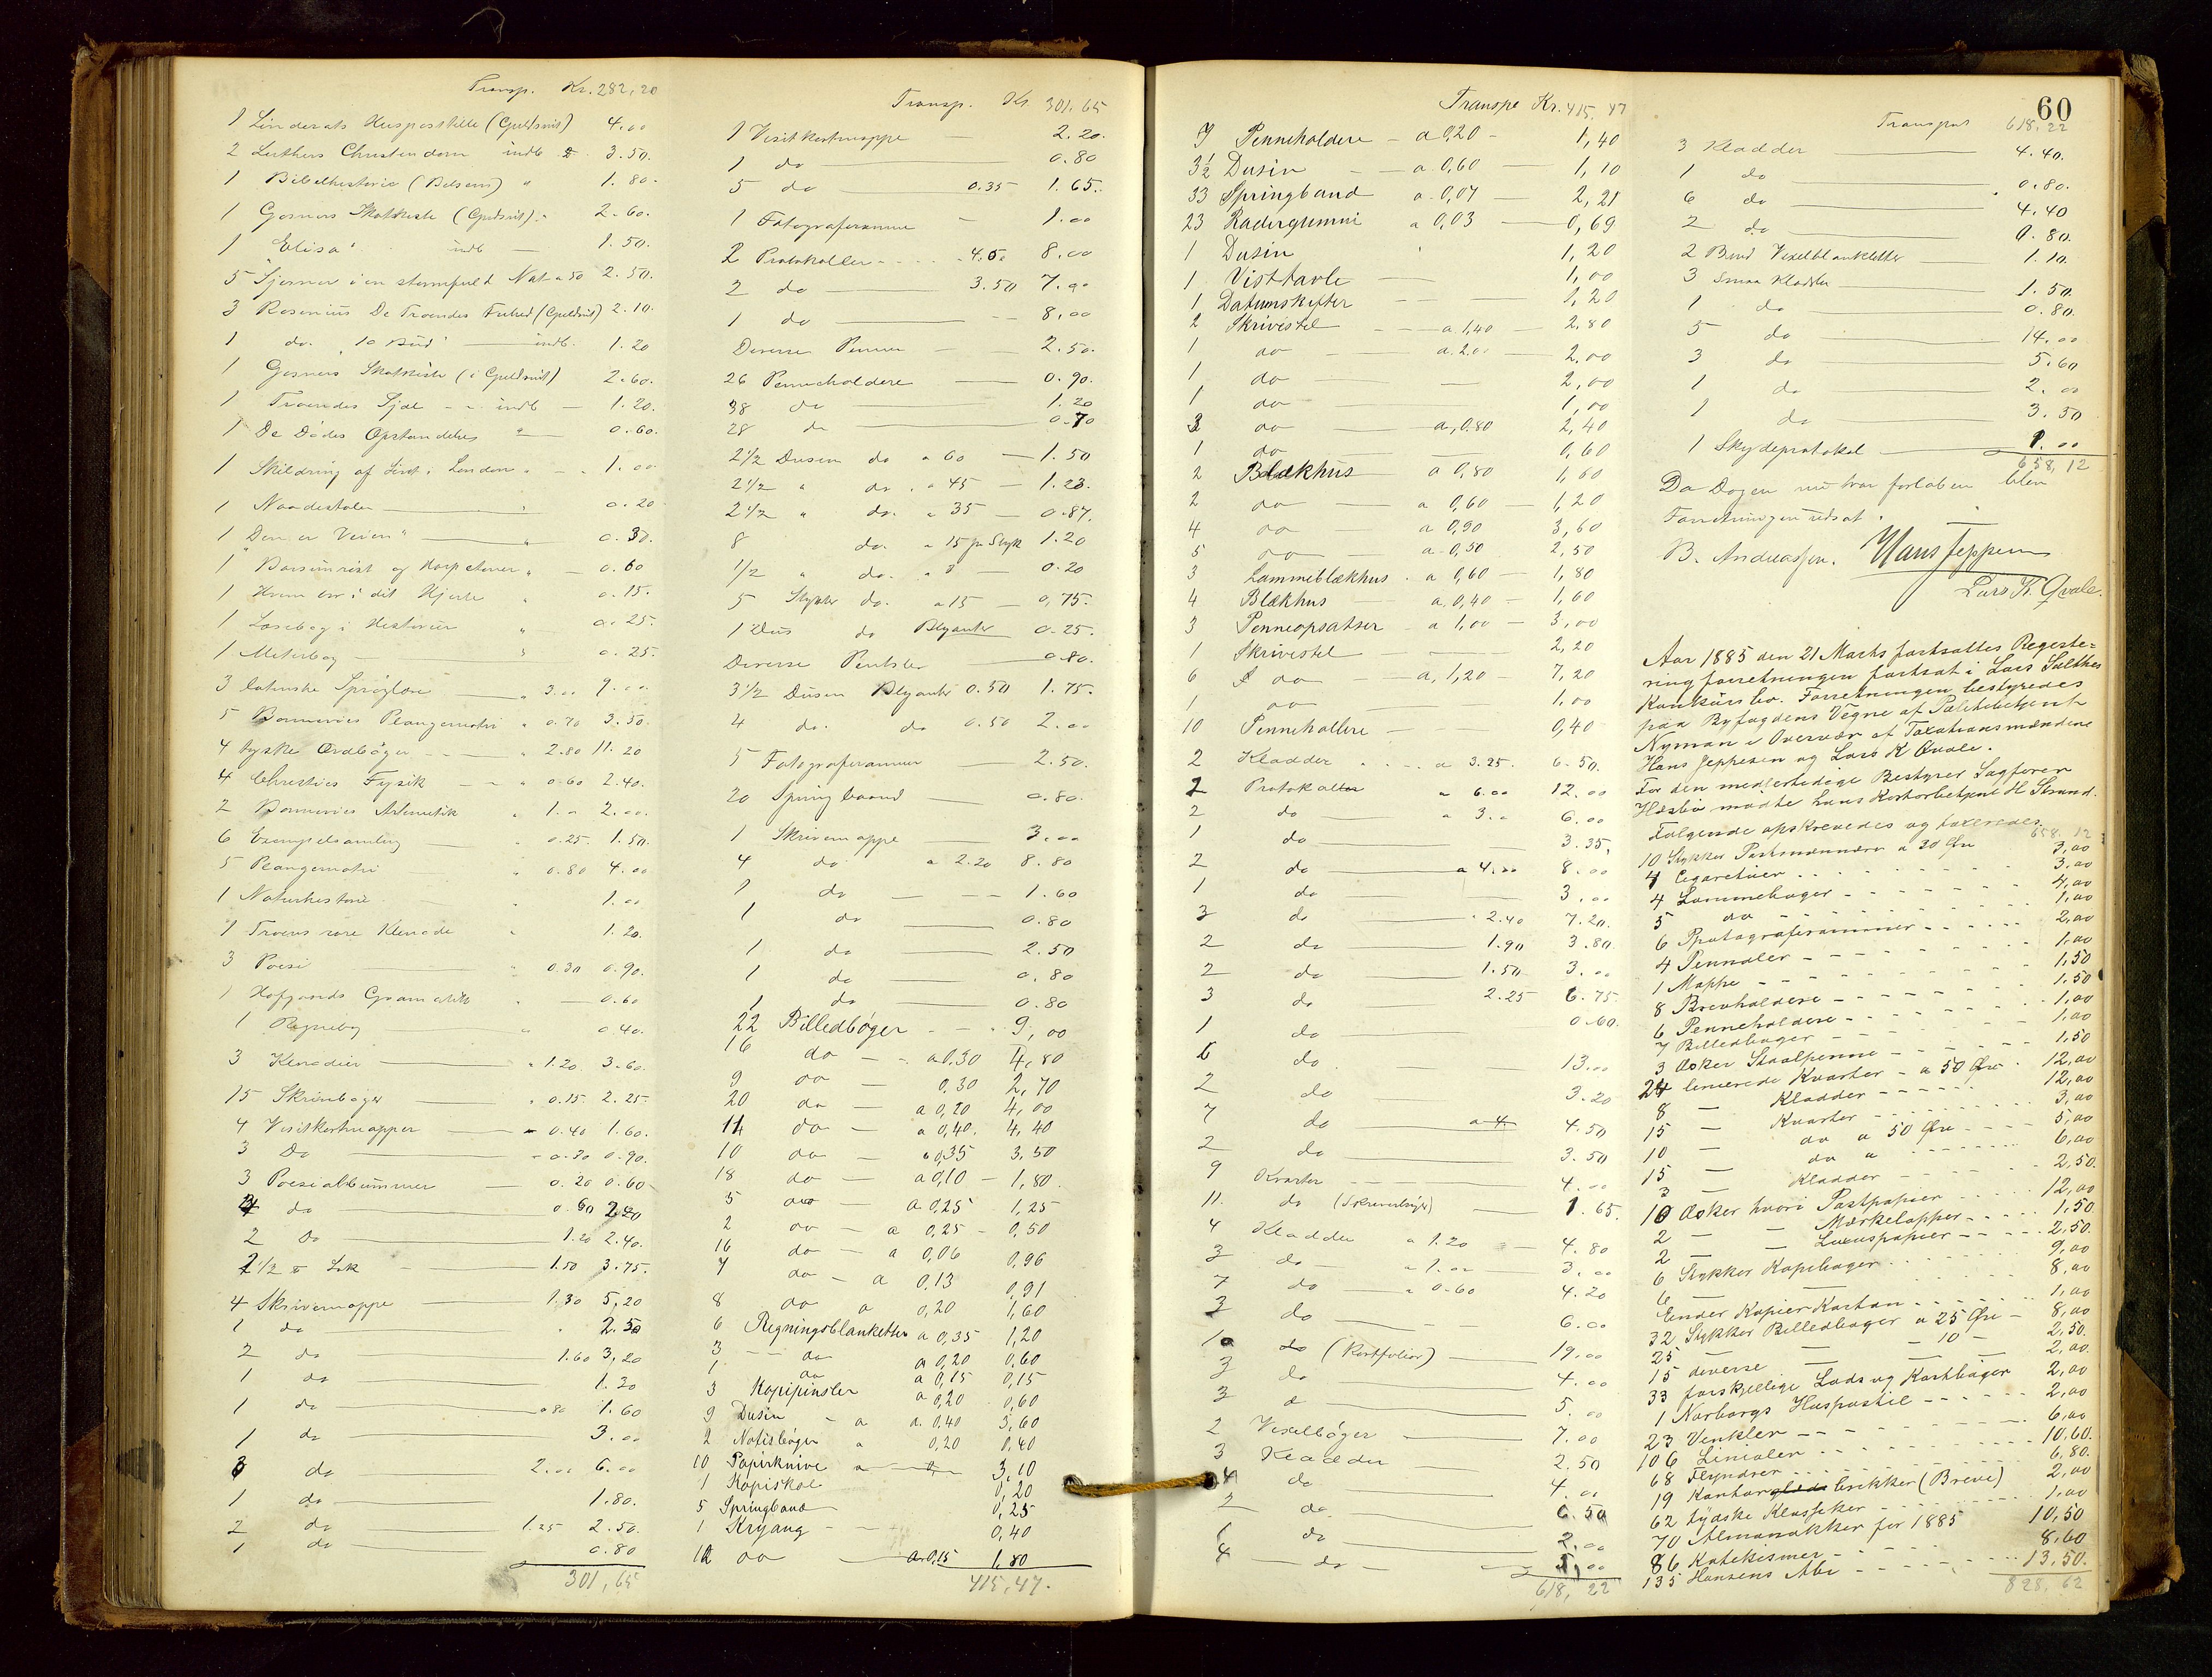 Transp. Kr. 282,20
1 Linderots Huspostille (Guldsnit) 4.00
2 Luthers Christendom indb 3.50.
1 Bibelhistorie 1.80.
1 Gosners Skatkiste (Guldsnit) 2.60.
1 "Elisa" indb 1.50.
5 Stjerner i en stormfuld Nat a 50 2.50.
3 Rosenius De Troendes Frihed (Guldsnit) 2.10.
1 do. "10 Bud" indb. 1.20
1 Gosners Skatkiste (i Guldsnit) 2.60.
1 Troendes Sjæl indb 1.20.
1 De Dødes Opstandelse " 0.60.
1 Skildring af Livet i London " 1.00
1 Naadestolen " 0.20
1 Den er Veien " 0.30.
1 og Harpetoner " 0.60
1 Hvem bor i dit Hjerte " 0.15.
1 Læsebog i Historie " 0.25.
1 Meterbog " 0.25.
3 latinske Sproglære " 3.00 9.00
5 Bonnevies Plangeometri " 0.70 3.50.
4 tyske Ordbøger " 2.80 11.20
4 Christies Fysik " 0.60 2.40.
2 Bonnevies Aritmetik " 1.00 2.00.
6 Exempelsamling " 0.25 1.50.
5 Plangeometri " 0.80 4.00
1 Naturhistorie " 1.00
1 Troens rare Klenodie " 1.20.
3 Poesi " 0.30 0.90.
1 Hofgaards Gramatik " 0.60
1 Regnebog " 0.40.
3 Klenodier " 1.20 3.60.
15 Skrivebøger " 0.15. 2.25.
4 Visitkortmapper 0.40 1.60.
3 Do 0.30 0.90.
3 Poesialbummer 0.20 0.60
4 do 0.60 2.40
2 Do 1.20 2.40.
2 1/2 ℔ Lak 1.50 3.75.
4 Skrivemappe 1.30 5,20
1 do 2.50
2 do 1.60 3,20
1 do 1.20
1 do a 80 1.60
1 do 3.00
3 do 2.00 6.00
1 do 1.80.
2 do 1.25 2.50.
1 do 0.80
301,65
Transp. Kr 301.65
1 Visitkortmappe 2.20.
1 do 0.80
5 do 0.35 1.65.
1 Fotograferamme 1.00
2 Protokoller 4.00 8.00
2 do 3.50 7.00
1 do 8,00
Diverse Penner 2.50.
26 Penneholdere 0.90.
38 do 1.20
28 do 0.70
2 1/2 Dusin do a 60 1.50
2 1/2 " do. " 45 1.23.
2 1/2 " do. " 35 0.87.
8 do. a 15 pr Styk 1.20
1/2 " do. 0.20
5 Stykker do. a 15 0,75.
1 Dus do Blyanter 0.25.
Diverse Pentsler 0.80.
3 1/2 Dusin Blyanter 0.50 1.75.
4 do. do 0.50 2.00
5 Fotograferammer 2.50.
20 Springbaand 0.80.
1 Skrivemappe 3.00
4 do a 2.20 8.80
1 do 1.60
1 do 0.80
1 do 2.50
1 do 0.80
1 do 0.80
22 Billedbøger 9,00
16 do a 0,30 4,80
9 do 0,30 2,70
20 do a 0,20 4,00
11 do a 0,40. 4,40
10 do a 0,35 3,50
18 do a 0,10 1,80.
5 do a 0,25 1,25
2 do a 0,25 0,50
16 do a 0,06 0,96
7 do a 0,13 0,91
8 do a 0,20 1,60
6 Regningsblanketter a 0,35 1,20
3 do a 0,20 0,60
1 do a 0,15 0,15
3 Kopipinsler a 0,20 0,60
9 Dusin a 0,40 3,60
2 Notisbøger a 0,20 0,40
10 Papirknive 3,10
1 Kopiskal 0,20
5 Springbaand 0,25
1 Kryang 0,40
12 do a 0,15 1,80
415,47.
Transpt Kr. 415,47
7 Penneholdere a 0,20 1,40
3½ Dusin a 0,60 1,10
33 Springbaand a 0,07 2,21
23 Radergummi a 0,03 0,69
1 Dusin 1,20
1 Visttavle 1,00
1 Datumskifter 1,20
2 Skrivestel a 1,40 2.80
1 do a 2.00 2,00
1 do 2,00
1 do 1,00
3 do a 0.80 2,40
1 do 0,60
2 Blækhus a 0,80 1,60
2 do a 0,60 1,20
4 do a 0,90 3,60
5 do a 0,50 2,50
3 Lommeblækhus a 0,60 1,80
4 Blækhus a 0,40 1,60
3 Penneopsatser a 1,00 3,00
1 Skrivestel 2,20
6 do a 1,20 7,20
1 do 1,00
10 Penneholdere 0,40
2 Kladder a 3.25. 6.50.
2 Protokoller a 6.00 12.00
2 do a 3.00 6.00
1 do 3.35.
2 do a 4.00 8.00
1 do 3.00
3 do 2.40 7.20.
2 do 1.90 3.80.
2 do 1.50 3.00
3 do 2.25 6.75.
1 do 0.60.
6 do 13.00
2 do 3.20
7 do 4.50
2 do 3.50
9 Kvarter 4.00
11. do (Skrivebøger) 1.65.
4 Kladder a 1.20 4.80
3 do " 1.00 3.00
7 do " 0.60 4.20
3 do 6.00
10 do (Portfolier) 19.00
3 do 4.00
3 do 5.00
2 Vexelbøger 7.00
3 Kladder 2.50
4 do 4.00
2 do 6.50
1 do 2.00
4 do 5,00
618,22
60
Transport 618.22
3 Kladder 4.40.
1 do 0.80.
6 do 4.40
2 do 0.80.
2 Bind Vexelblanketter 1.10.
3 Smaa Kladder 1.50.
1 do 0.80.
5 do 14.00
3 do 5.60
1 do 2.00
1 do 3.50
1 Skydeprotokol 1.00
658,12
Da Dagen nu var forløben blev
Forretningen udsat.
B. Andreassen. Hans Jeppesen
Lars K. Qvale.
Aar 1885 den 21 Marts fortsattes Registe=
ringsforretningen fortsat i Lars Salthes
Konkursbo. Forretningen bestyredes
paa Byfogdens Vegne af Politibetjent
Nyman i Overvær af Taxationsmændene
Hans Jeppesen og Lars K Qvale.
For den midlertidige Bestyrer Sagfører
Hæsbø mødte hans Kontorbetjent H Strand.
Følgende opskrevedes og taxeredes.
658.12
10 Stykker Portemonnæer a 30 Øre 3,00
4 Cigaretuier 3,00
4 Lommebøger 4,00
5 do 1,00
6 Photograferammer 2,00
4 Pennaler 1,00
1 Mappe 1,50
8 Brevholdere 1.50
6 Penneholdere 1,00
7 Billedbøger 1,00
3 Æsker Staalpenne 1,50
24 linierede Kvarter a 50 Øre 12,00
8 — Kladder 12,00
15 — Kvarter 3,00
10 — do a 50 Øre 5,00
15 — do a 6,00
3 — Kladder 2,50.
10 Æsker hvori Postpapir 12,00
2 — Mærkelapper 1,50
2 — Luxuspapir 2,50.
6 Stykker Kopibøger 9,00
6 — 8,00
Ender Kopier Karton 1,00
32 Stykker Billedbøger a 25 Øre 8,00
25 — — 10 — 2,50.
15 diverse 2,00.
33 forskjellige Lods og Kartbøger 2,00
1 Norborgs Huspostil 2,00
23 Venkler 6,00
106 Linialer 10.60.
68 Flyndrer 6,80.
19 Kontorbrikker (Breve) 2,00
62 tydske Klassiker 1,00
70 Almanakker for 1885 10,50
86 Katekismer 8,60
135 Hansens Abc 13,50.
828,62